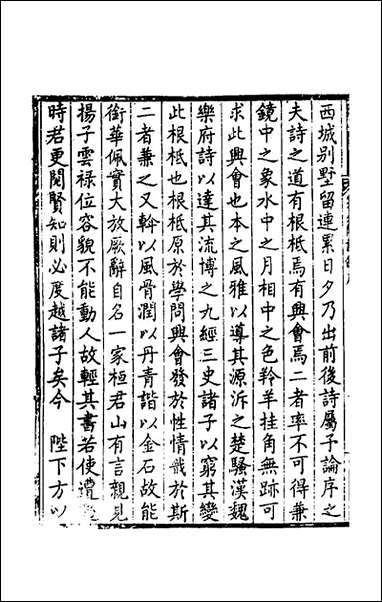 西城别墅留連累日夕乃出前後詩屬予論序之
夫詩之道有根柢焉有興會焉二者率不可得兼
鏡中之象水中之月相中之色羚羊挂角無跡可
求此興會也本之風雅以導其源泝之楚騷漢魏
樂府詩以達其流博之九經三史諸子以窮其變
此根柢也根柢原於學問興會發於性情戠於斯
二者兼之又斡以風骨潤以丹青諧以金石故能
銜華佩實大放厥辭自名一家桓君山有言親見
揚子雲禄位容貌不能動人故輕其書若使遭
時君更閱賢知則必度越諸子矣今 陛下方以